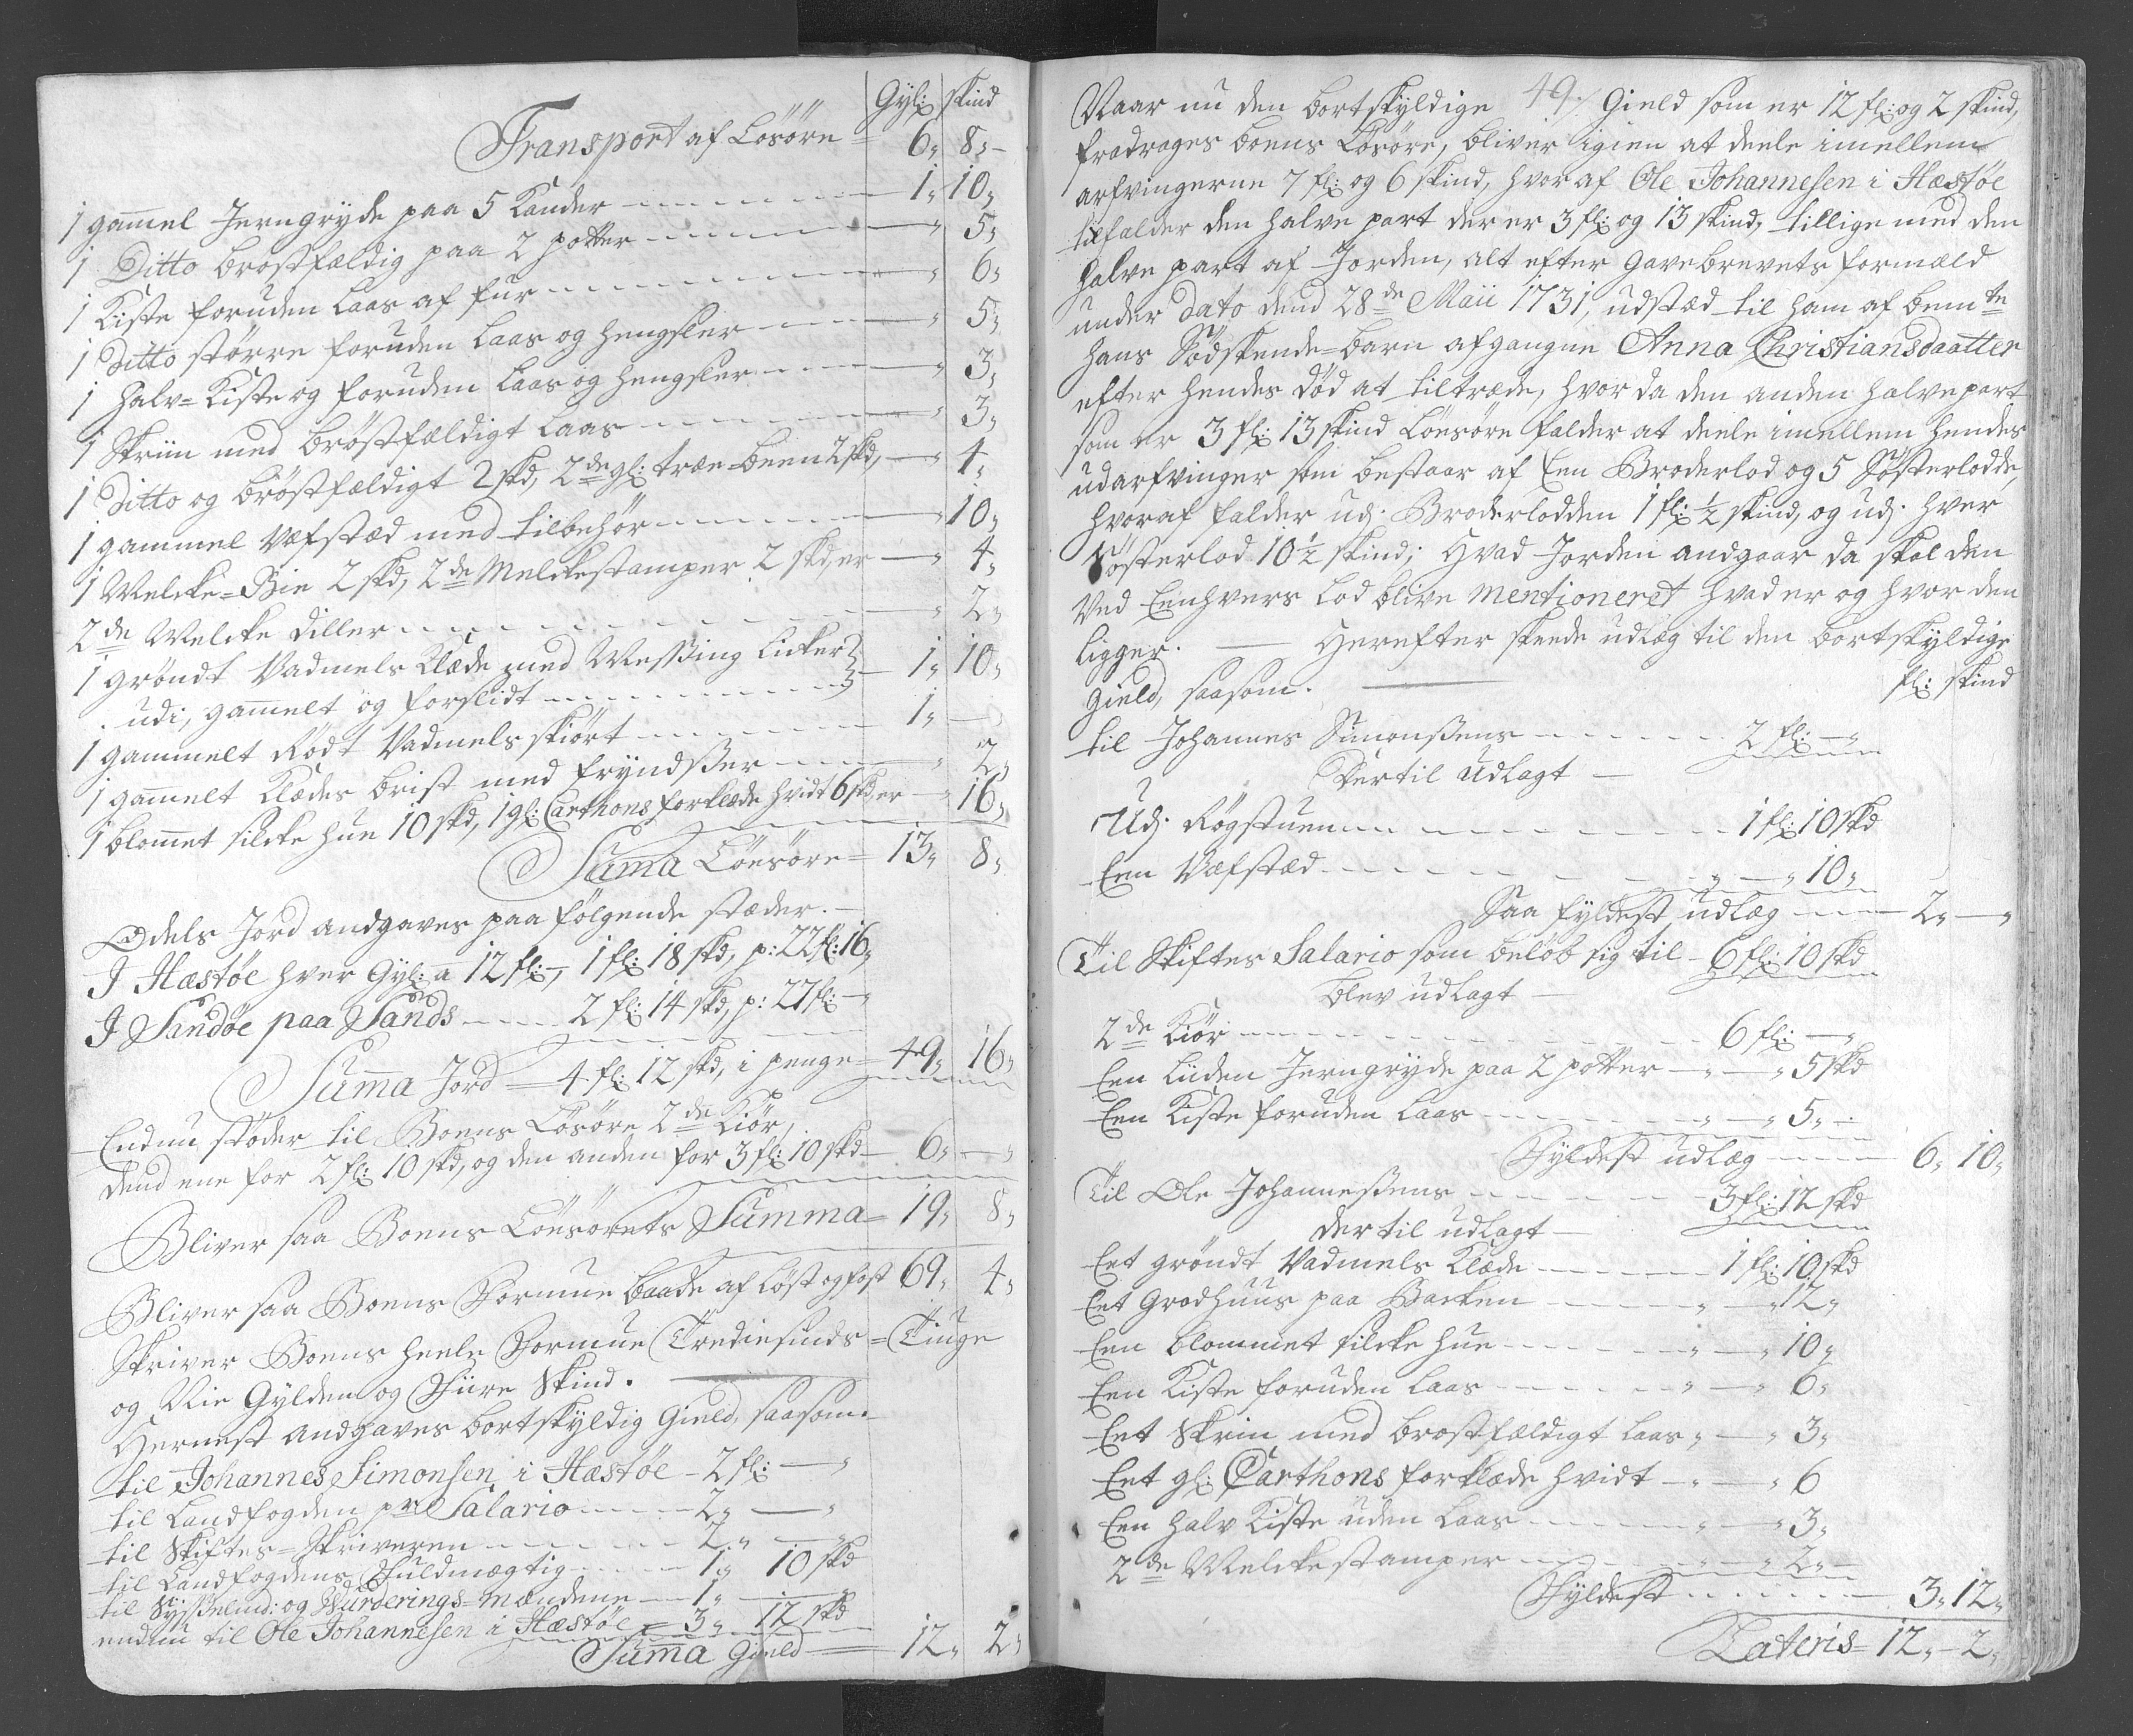 Gyl: skind
Transport af Løsøre = 6„ 8„ –
1 gammel Jerngryde paa 5 Kander — 1„ 10„
1 Ditto brøstfældig paa 2 potter — „ 5„
1 Kiste foruden laas af fur — „ 6„
1 Ditto større foruden laas og hengsler — „ 5„
1 halv=Kiste og foruden laas og hengsler — „ 3„
1 Skriin med brøstfældigt laas — „ 3„
1 Ditto og brøstfældigt 2 skd, 2de gl: træ-been 2 skd, — „ 4„
1 gammel Væfstæd med tilbehør — „ 10„
1 Melcke=Bie 2 skd, 2de Melckestamper 2 skd, er — „ 4„
2de Melcke diller — „ 2„
1 grøndt Vadmels Klæde med Messing licker
udi, gammelt og forslidt — 1„ 10„
1 gammelt Rødt Vadmels skiørt — 1„ —
1 gammelt Klædes brist med fryndsser — „ 2„
1 blommet silcke hue 10 skd, 1 gl: Carthons forklæde hvidt 6 skd er — „ 16„
Suma Løesøre = 13„ 8„
Odels Jord andgaves paa følgende stæder. —
I Hæstøe hver Gyl: a 12 fl:, 1 fl: 18 skd, p: 22 fl: 16„
I Sandøe paa Sands — 2 fl: 14 skd, p: 27 fl: — „
Suma Jord — 4 fl: 12 skd, i penge = 49„ 16„
Endnu støder til Boens Løsøre 2de Kiør,
dend ene for 2 fl: 10 skd, og den anden for 3 fl: 10 skd — 6„ — „
Bliver saa Boens Løesørets Summa = 19„ 8„
Bliver saa Boens Formue baade af løst og fast 69„ 4„
Skriver Boens heele Formue Trediesinds=Tiuge
og Nie Gylden og Fiire Skind.
Hernest andgaves bortskyldig Gield, saasom –
til Johannes Simonsen i Hæstøe – 2 fl: — „
til Landfogden pr Salario — 2„ — „
til Skiftes=Skriveren — 2„ — „
til Landfogdens Fuldmægtig — 1„ 10 skd
til Sysselmd: og Wurderings=mændene — 1„ —
endnu til Ole Johannesen i Hæstøe = 3„ 12 skd
Suma Gield — 12„ 2„
49.
Naar nu den bortskyldige Gield som er 12 fl: og 2 skind,
fradrages boens Løsøre, bliver igien at deele imellem
arfvingerne 7 fl: og 6 skind, hvoraf Ole Johannesen i Hæstøe
tilfalder den halve part der er 3 fl: og 13 skind, tillige med den
halve part af Jorden, alt efter gavebrevets formæld
under dato dend 28de Maii 1731, udstæd til ham af bemte
hans Södskende=barn afgangne Anna Christiansdaatter
efter hendes død at tiltræde, hvor da den anden halve part
som er 3 fl: 13 skind Løesøre falder at deele imellem hendes
udarfvinger som bestaar af Een Broderlod og 5 Søsterlodde,
hvoraf falder udj Broderlodden 1 fl: ½ skind, og udj hver
Søsterlod 10½ skind; Hvad Jorden andgaar da skal den
ved Eenhvers lod blive mentioneret hvad er og hvor den
ligger. — Herefter skeede udlæg til den bortskyldige
Gield, saasom. — fl: skind
til Johannes Simonssens — 2 fl: — „
Dertil udlagt —
Udj Røgstuen — 1 fl: 10 skd
Een Væfstæd — „ — „ 10„
Saa fyldest udlæg — 2„ — „
Til Skiftes Salario som beløb sig til – 6 fl: 10 skd
blev udlagt —
2de Kiør — 6 fl: — „
Een liiden Jerngryde paa 2 potter — „ — „ 5 skd
Een Kiste foruden laas — „ — „ 5„ –
Fyldest udlæg — 6„ 10„
Til Ole Johannessens — 3 fl: 12 skd
dertil udlagt —
Eet grøndt Vadmels Klæde — 1 fl: 10 skd
Eet Grodhuus paa Backen — „ — „ 12„
Een blommet silcke hue — „ — „ 10„
Een Kiste foruden laas — „ — „ 6„
Eet Skrin med brøstfældigt laas „ — „ 3„
Eet gl: Carthons forklæde hvidt — „ — „ 6
Een halv Kiste uden laas — „ — „ 3„
2de Melckestamper — „ — „ 2„ –
Fyldest — 3„ 12„
Lateris = 12„ – 2„